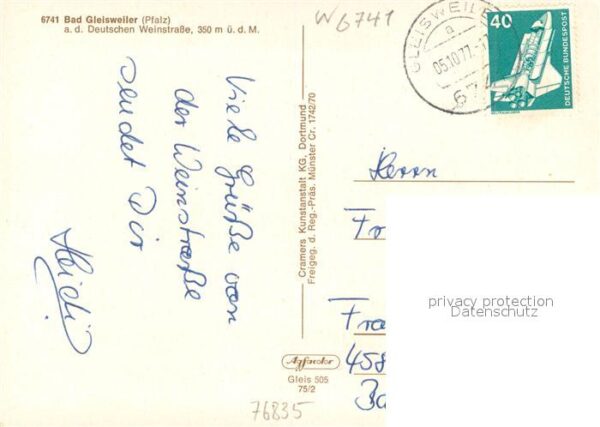 6741 Bad Gleisweiler (Pfalz)
a. d. Deutschen Weinstraße, 350 m ü. d. M.
W 6741
GLEISWEILE
a
05.10.77
674
40
DEUTSCHE BUNDESPOST
Viele Grüße von
der Weinstraße
sendet Dir
Heidi
Cramers Kunstanstalt KG, Dortmund
Freigeg. d. Reg.-Präs. Münster Cr. 1742/70
Herrn
Fr
Fra
458
Ba
privacy protection
Datenschutz
Agfacolor
Gleis 505
75/2
76835